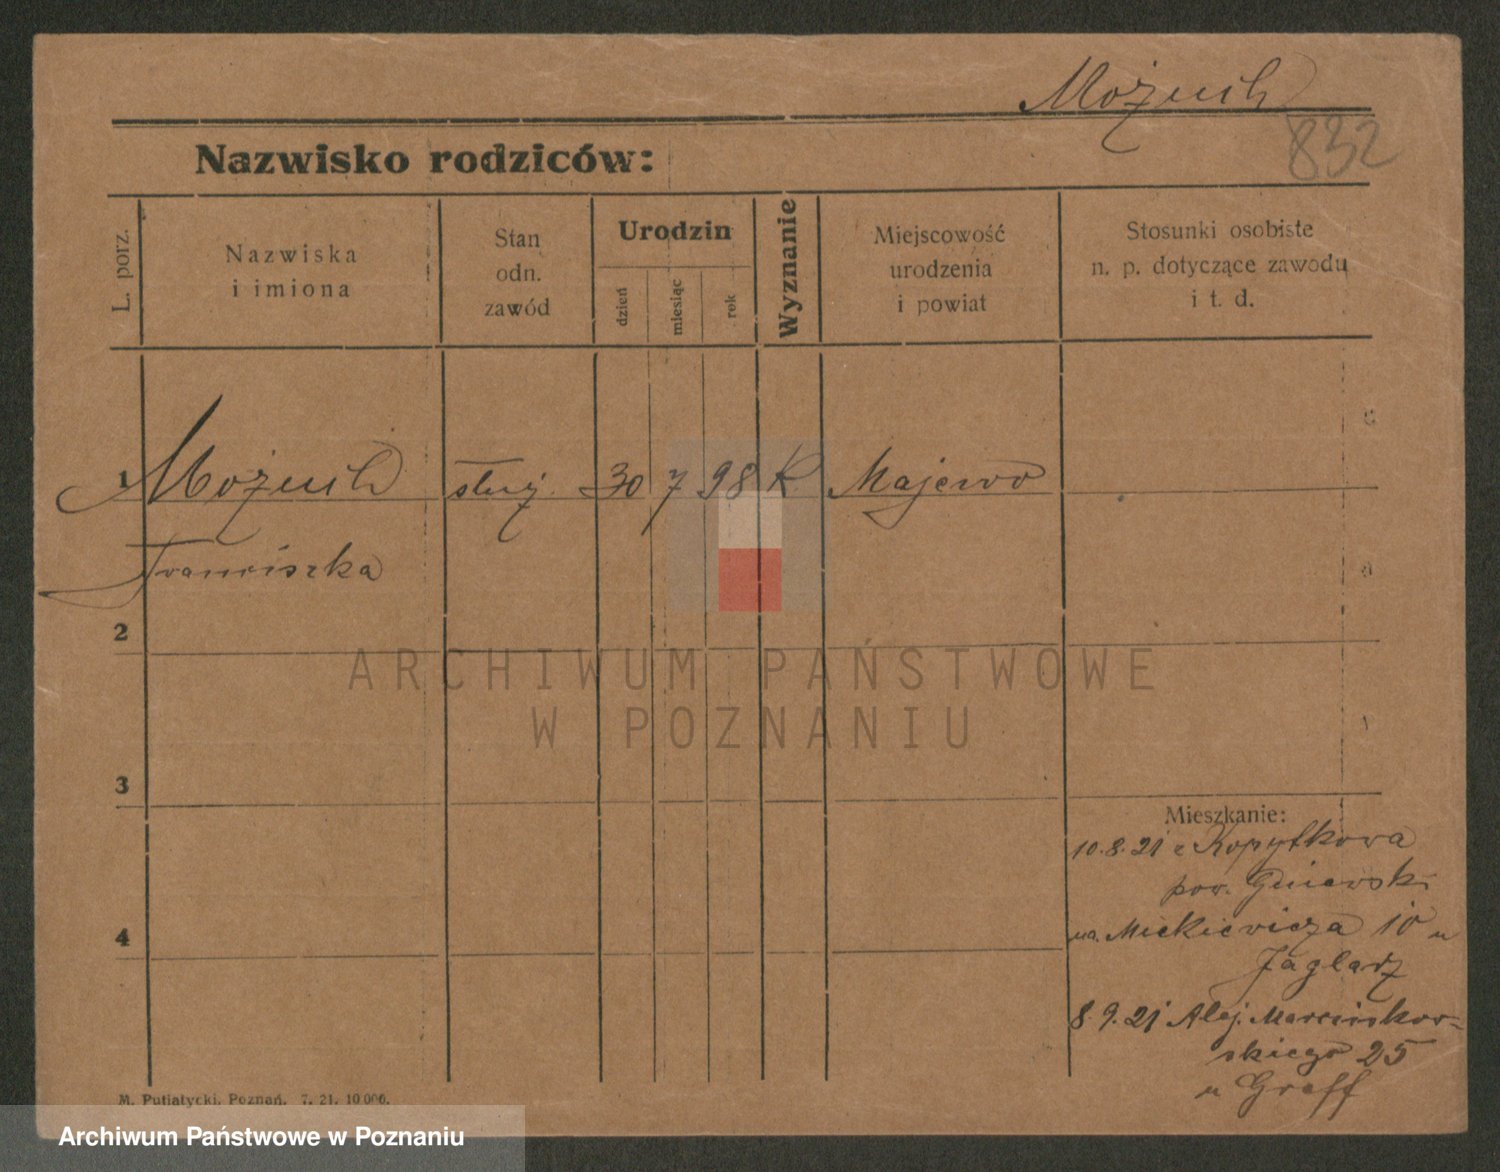 Możuch
832
Nazwisko rodziców:
L. porz.
Nazwiska
i imiona
Stan
odn.
zawód
Urodzin
dzień
miesiąc
rok
Wyznanie
Miejscowość
urodzenia
i powiat
Stosunki osobiste
n. p. dotyczące zawodu
i t. d.
1 Możuch służ. 30 7 98 K Majewo
Franciszka
2
3
4
Mieszkanie:
10.8.21 z Kopytkowa
pow. Gniewski
na. Mickiewicza 10 u
Jagladz
8.9.21 Alej. Marcinkow-
skiego 25
u Graff
M. Putiatycki, Poznań. 7. 21. 10 000.
ARCHIWUM PAŃSTWOWE
W POZNANIU
Archiwum Państwowe w Poznaniu